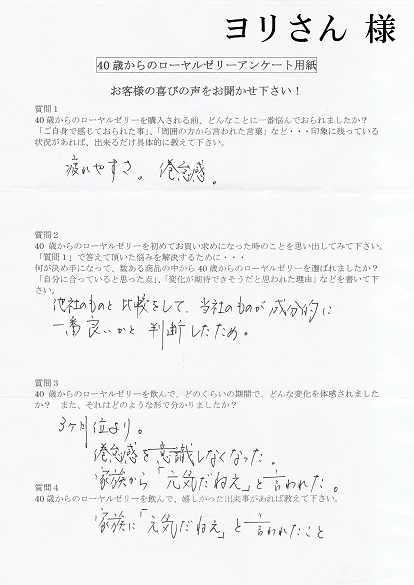 ヨリさん 様
40歳からのローヤルゼリーアンケート用紙
お客様の喜びの声をお聞かせ下さい！
質問１
40歳からのローヤルゼリーを購入される前、どんなことに一番悩んでおられましたか？
「ご自身で感じておられた事」、「周囲の方から言われた言葉」など・・・印象に残っている
状況があれば、出来るだけ具体的に教えて下さい。
疲れやすさ。倦怠感。
質問２
40歳からのローヤルゼリーを初めてお買い求めになった時のことを思い出してみて下さい。
「質問１」で答えて頂いた悩みを解決するために・・・
何が決め手になって、数ある商品の中から40歳からのローヤルゼリーを選ばれましたか？
「自分に合っていると思った点」、「変化が期待できそうだと思われた理由」などを書いて下
さい。
他社のものと比較をして、当社のものが成分的に
一番良いかと判断したため。
質問３
40歳からのローヤルゼリーを飲んで、どのくらいの期間で、どんな変化を体感されました
か？ また、それはどのような形で分かりましたか？
3ヶ月位より。
倦怠感を意識しなくなった。
家族から「元気だねえ」と言われた。
質問４
40歳からのローヤルゼリーを飲んで、嬉しかった出来事があれば教えて下さい。
家族に「元気だねえ」と言われたこと